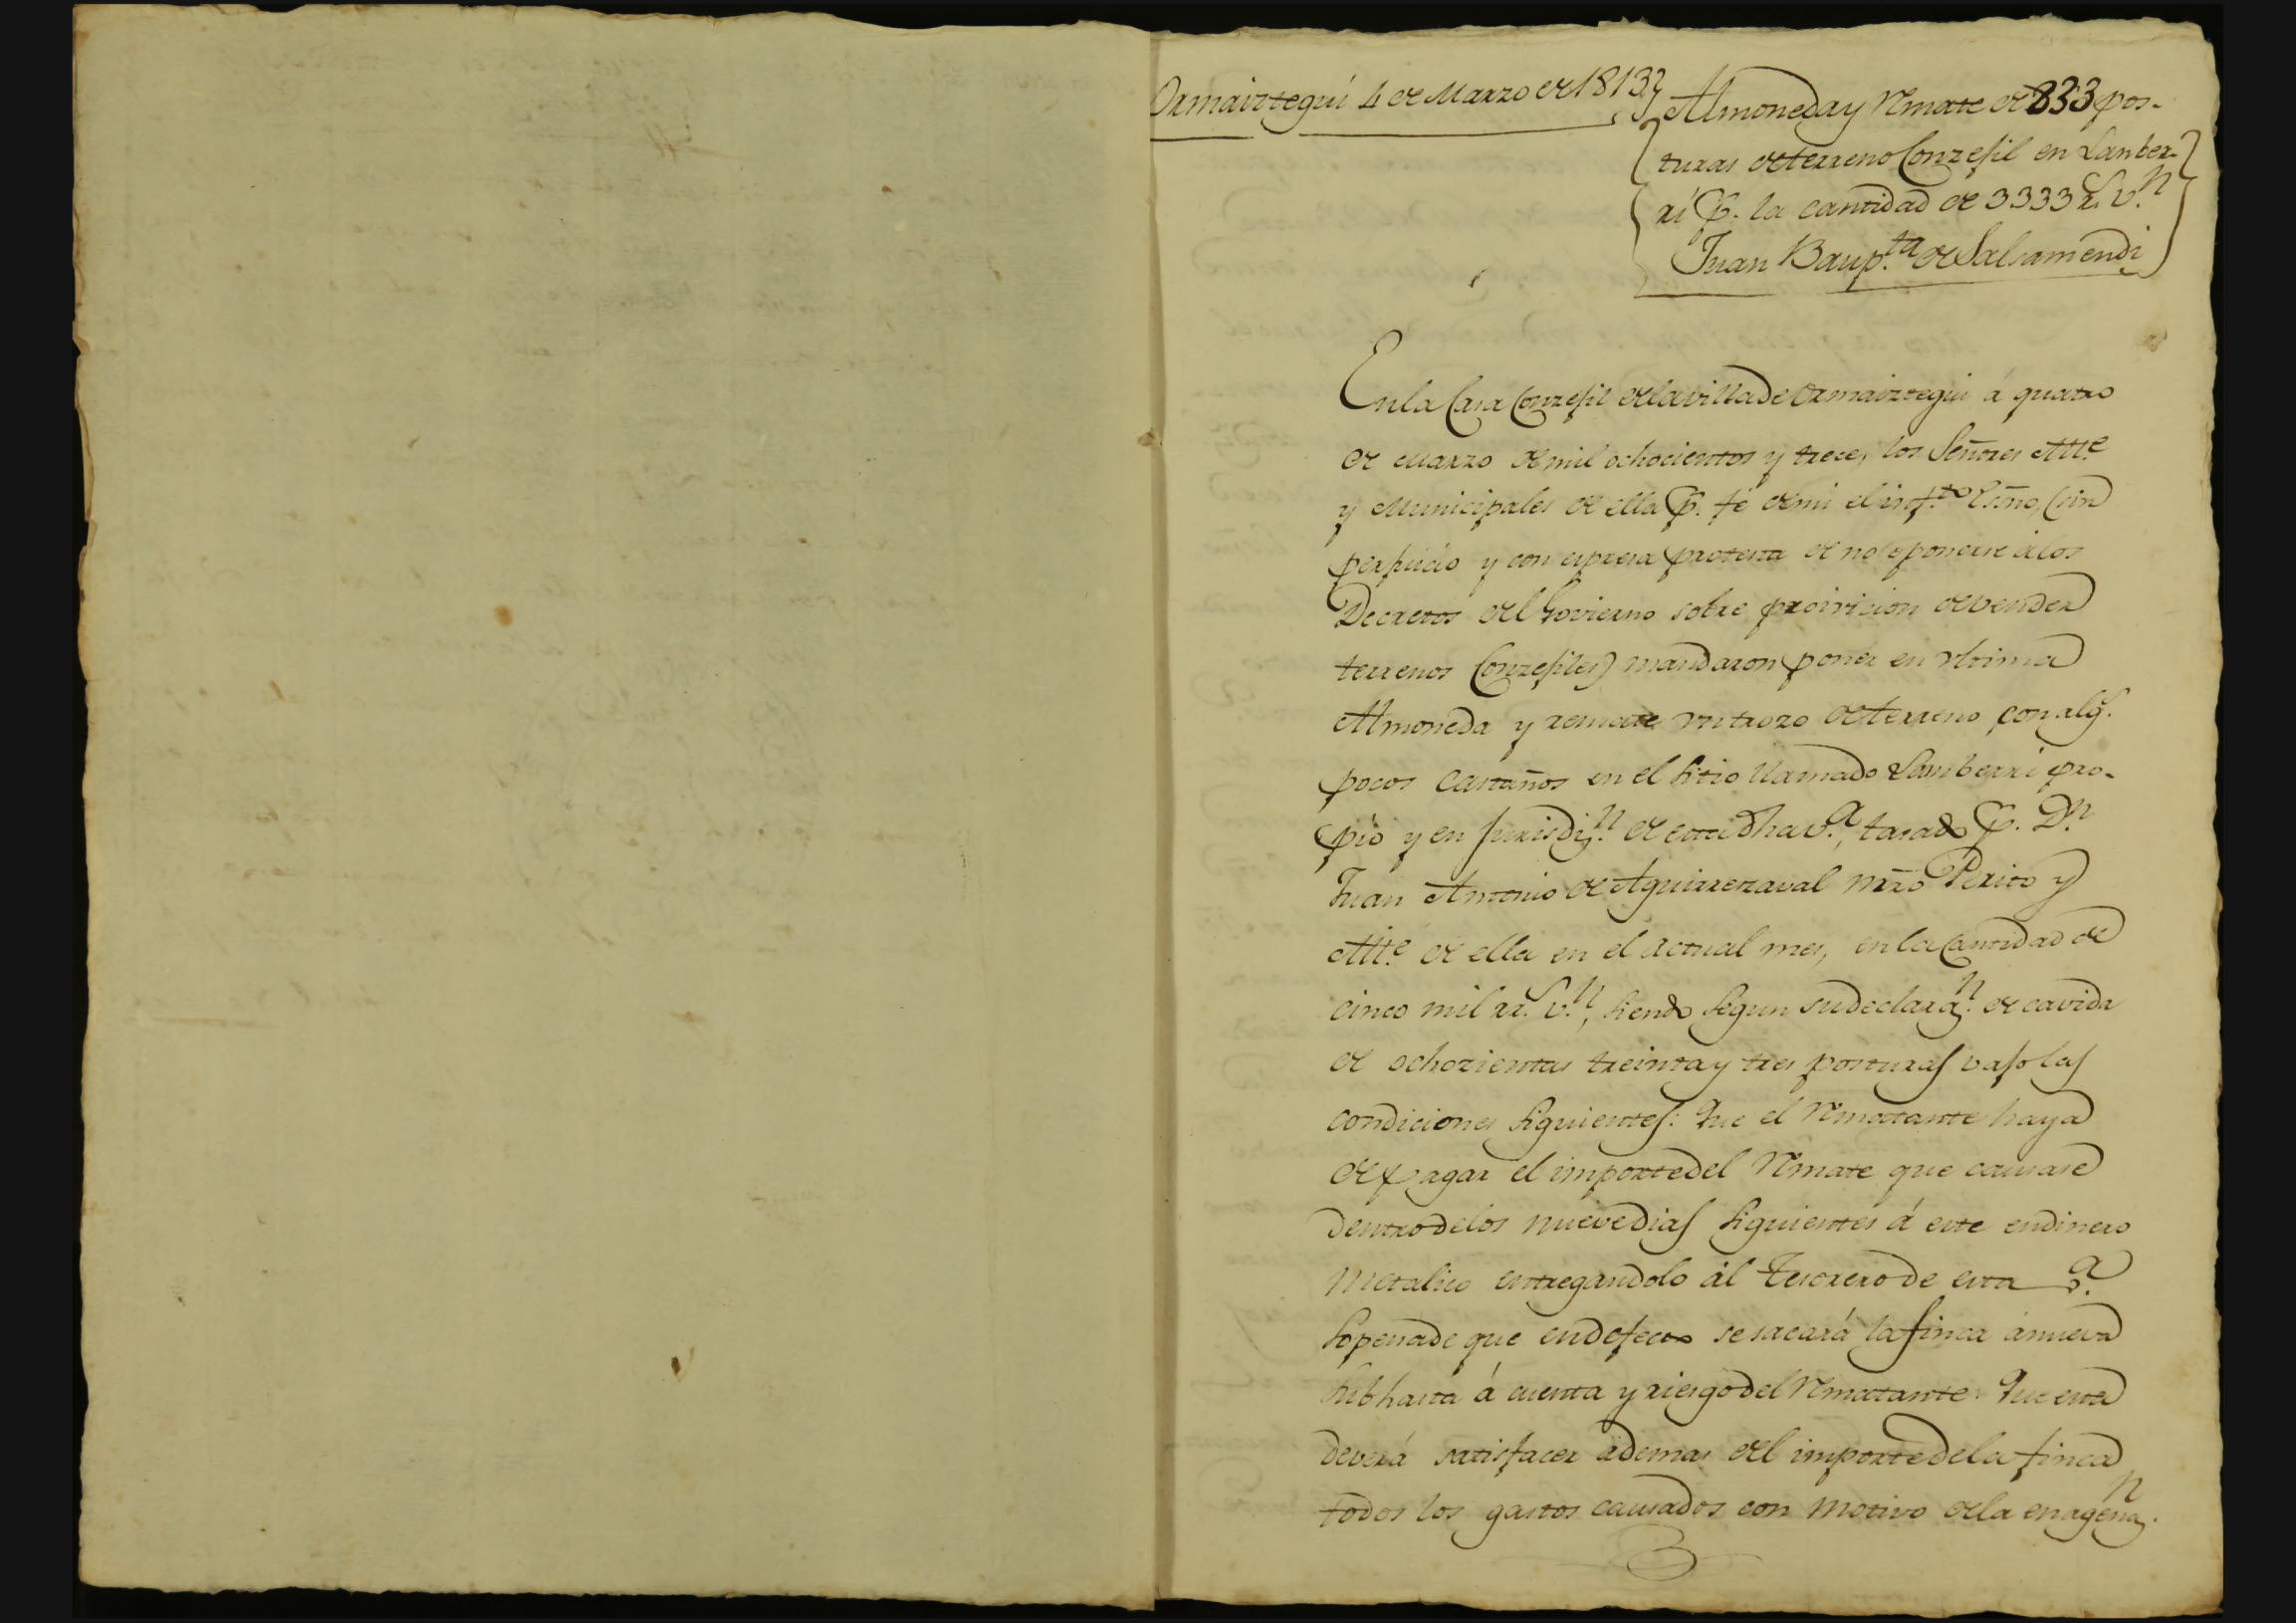 Ormaiztegui 4 de Marzo de 1813
Almoneda y Rmate de 833 pos-
turas de terreno Conzejil en Lanber-
rí p. la cantidad de 3333 r.s v.n
Juan Baup.ta de Salsamendi
En la Casa Conzejil de la villa de Ormaiztegui á quatro
de Marzo de mil ochocientos y trece, los Señores Alt.e
y Municipales de ella p. fé de mi el inf.to Esño, (sin
perjuicio y con expresa protesta de no oponerse á los
Decretos del Govierno sobre proivicion de vender
terrenos Conzejiles) mandaron poner en Vltima
Almoneda y remate vn trozo de terreno con alg.s
pocos Castaños en el sitio llamado Lamberri pro-
pio y en Jurisdi.n de esta dha v.a, tasado p. D.n
Juan Antonio de Aguirrezaval Mr̃o Perito y
Alt.e de ella en el actual mes, en la Cantidad de
cinco mil rr.s v.n, siendo segun su declara.n de cavida
de ochozientas treinta y tres posturas vajo las
condiciones siguientes: Que el Rmatante haya
de pagar el importe del Rmate que causare
dentro de los nueve dias siguientes á este en dinero
Metalico entregandolo ál Tesorero de esta v.a
sopena de que en defecto se sacará la finca á nueva
subhasta á cuenta y riesgo del Rmatante. Que este
deverá satisfacer ademas del importe de la finca
todos los gastos causados con motivo de la enagena.n